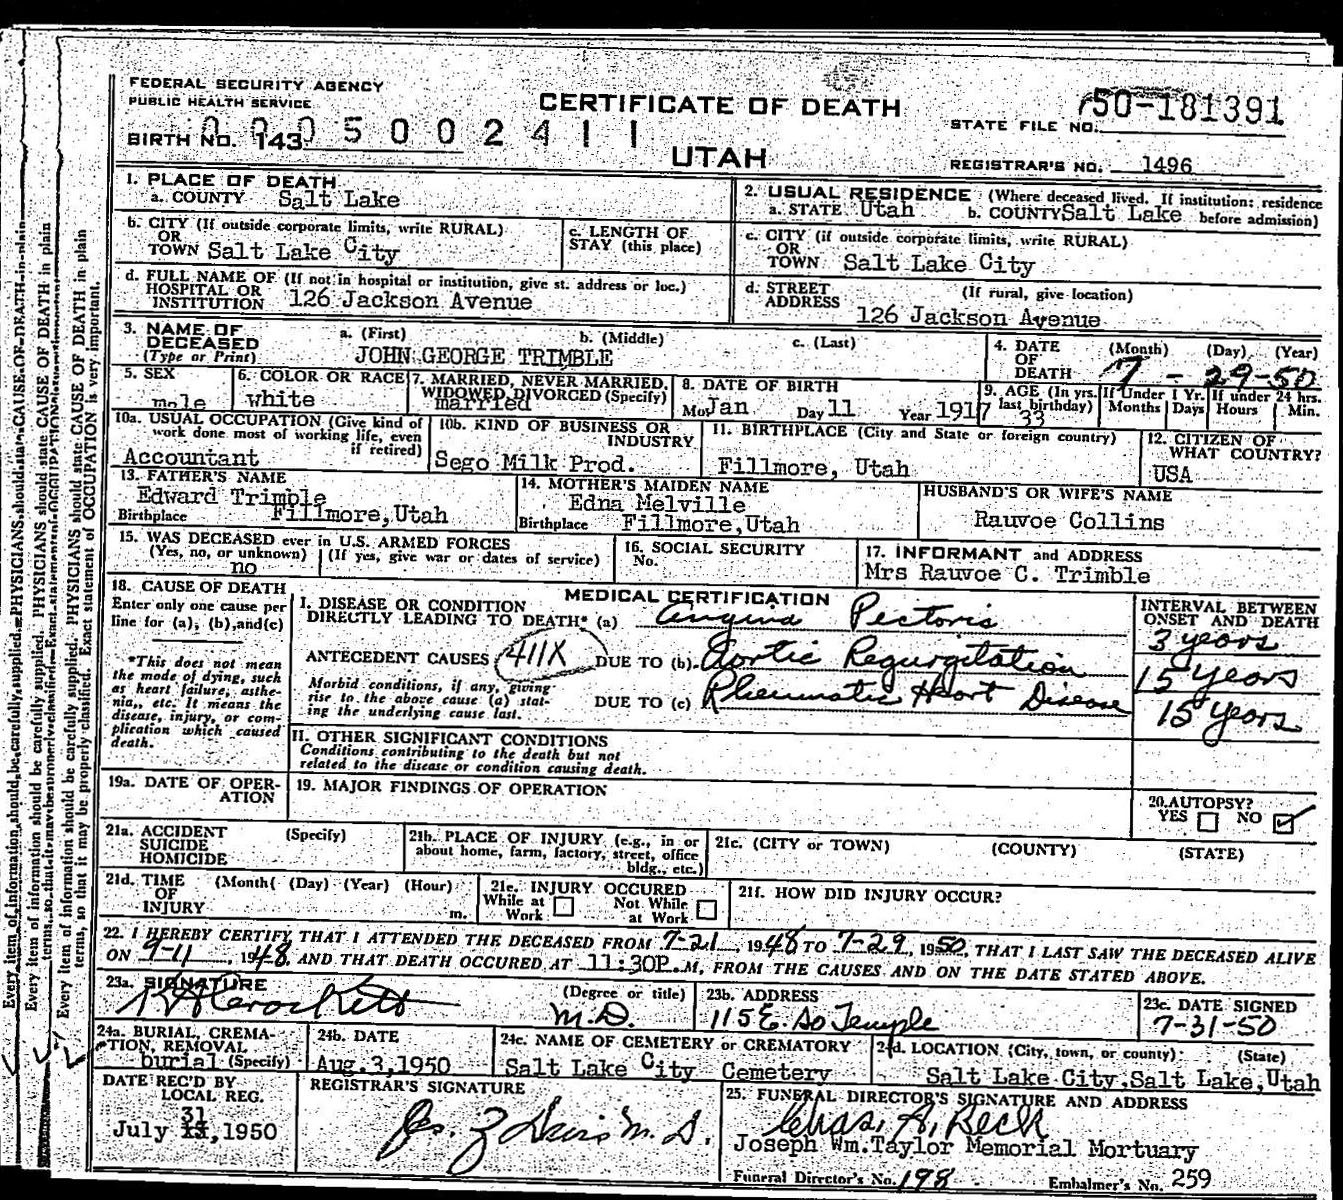 FEDERAL SECURITY AGENCY
PUBLIC HEALTH SERVICE
CERTIFICATE OF DEATH
UTAH
BIRTH NO. 143
0005002411
STATE FILE NO. 50-181391
REGISTRAR'S NO. 1496
1. PLACE OF DEATH
a. COUNTY Salt Lake
2. USUAL RESIDENCE (Where deceased lived. If institution: residence before admission)
a. STATE Utah b. COUNTY Salt Lake
b. CITY (If outside corporate limits, write RURAL)
OR
TOWN Salt Lake City
c. LENGTH OF STAY (this place)
c. CITY (if outside corporate limits, write RURAL)
OR
TOWN Salt Lake City
d. FULL NAME OF (If not in hospital or institution, give st. address or loc.)
HOSPITAL OR
INSTITUTION 126 Jackson Avenue
d. STREET ADDRESS (If rural, give location)
126 Jackson Avenue
3. NAME OF DECEASED (Type or Print)
a. (First) b. (Middle) c. (Last)
JOHN GEORGE TRIMBLE
4. DATE OF DEATH (Month) (Day) (Year)
7 - 29-50
5. SEX
male
6. COLOR OR RACE
white
7. MARRIED, NEVER MARRIED, WIDOWED, DIVORCED (Specify)
married
8. DATE OF BIRTH
Mo. Jan Day 11 Year 1917
9. AGE (In yrs. last birthday)
33
If Under 1 Yr. Months Days
If under 24 hrs. Hours Min.
10a. USUAL OCCUPATION (Give kind of work done most of working life, even if retired)
Accountant
10b. KIND OF BUSINESS OR INDUSTRY
Sego Milk Prod.
11. BIRTHPLACE (City and State or foreign country)
Fillmore, Utah
12. CITIZEN OF WHAT COUNTRY?
USA
13. FATHER'S NAME
Edward Trimble
Birthplace Fillmore, Utah
14. MOTHER'S MAIDEN NAME
Edna Melville
Birthplace Fillmore, Utah
HUSBAND'S OR WIFE'S NAME
Rauvoe Collins
15. WAS DECEASED ever in U.S. ARMED FORCES
(Yes, no, or unknown) (If yes, give war or dates of service)
no
16. SOCIAL SECURITY No.
17. INFORMANT and ADDRESS
Mrs Rauvoe C. Trimble
18. CAUSE OF DEATH
Enter only one cause per line for (a), (b), and (c)
*This does not mean the mode of dying, such as heart failure, asthenia, etc. It means the disease, injury, or complication which caused death.
MEDICAL CERTIFICATION
I. DISEASE OR CONDITION
DIRECTLY LEADING TO DEATH* (a) Angina Pectoris
ANTECEDENT CAUSES 411X DUE TO (b) Aortic Regurgitation
Morbid conditions, if any, giving rise to the above cause (a) stating the underlying cause last.
DUE TO (c) Rheumatic Heart Disease
INTERVAL BETWEEN ONSET AND DEATH
3 years
15 years
15 years
II. OTHER SIGNIFICANT CONDITIONS
Conditions contributing to the death but not related to the disease or condition causing death.
19a. DATE OF OPERATION
19. MAJOR FINDINGS OF OPERATION
20. AUTOPSY?
YES NO
21a. ACCIDENT SUICIDE HOMICIDE (Specify)
21b. PLACE OF INJURY (e.g., in or about home, farm, factory, street, office bldg., etc.)
21c. (CITY or TOWN) (COUNTY) (STATE)
21d. TIME OF INJURY (Month( (Day) (Year) (Hour) m.
21e. INJURY OCCURED
While at Work Not While at Work
21f. HOW DID INJURY OCCUR?
22. I HEREBY CERTIFY THAT I ATTENDED THE DECEASED FROM 7-21, 1948 TO 7-29, 1950, THAT I LAST SAW THE DECEASED ALIVE
ON 9-11, 1948 AND THAT DEATH OCCURED AT 11:30P.M, FROM THE CAUSES AND ON THE DATE STATED ABOVE.
23a. SIGNATURE (Degree or title)
Crockett M.D.
23b. ADDRESS
115 E. So Temple
23c. DATE SIGNED
7-31-50
24a. BURIAL, CREMATION, REMOVAL (Specify)
burial
24b. DATE
Aug. 3, 1950
24c. NAME OF CEMETERY or CREMATORY
Salt Lake City Cemetery
24d. LOCATION (City, town, or county) (State)
Salt Lake City, Salt Lake, Utah
DATE REC'D BY LOCAL REG.
July 31, 1950
REGISTRAR'S SIGNATURE
M.D.
25. FUNERAL DIRECTOR'S SIGNATURE AND ADDRESS
Chas. A. Beck
Joseph Wm. Taylor Memorial Mortuary
Funeral Director's No. 198 Embalmer's No. 259
Every item of information should be carefully supplied. PHYSICIANS should state CAUSE OF DEATH in plain
terms, so that it may be properly classified. Exact statement of OCCUPATION is very important.